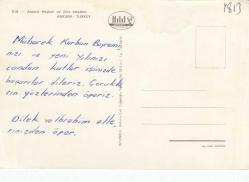 Atatürk Heykeli ve Zafer meydanı
ANKARA - TURKEY
1813
Mübarek Kurban Bayramı
nızı ve yeni yılınızı
candan kutlar işinizde
başarılar dileriz. Çocukla
rın gözlerinden öperiz.
Dilek ve İbrahim elle
rinizden öper.